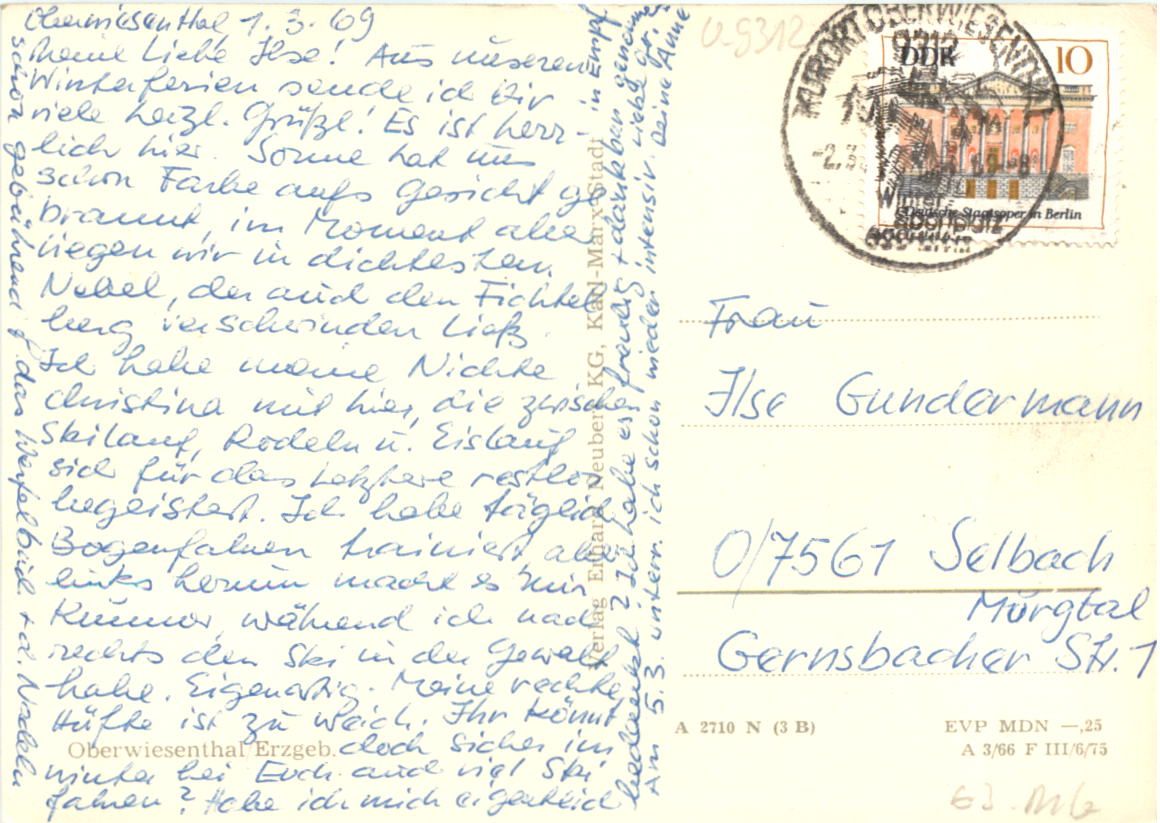 Oberwiesenthal, 1.3.69
Meine Liebe Ilse! Aus unseren
Winterferien sende ich Dir
viele herzl. Grüße! Es ist herr-
lich hier. Sonne hat uns
schon Farbe aufs Gesicht ge-
brannt, im Moment aber
liegen wir in dichtestem
Nebel, der auch den Fichtel
berg verschwinden ließ.
Ich habe meine Nichte
Christina mit hier, die zwischen
Skilauf, Rodeln u. Eislauf
sich für das Letztere restlos
begeistert. Ich habe täglich
Bogenfahren trainiert, aber
links herum macht es mir
Kummer, während ich nach
rechts den Ski in der Gewalt
habe. Eigenartig. Meine rechte
Hüfte ist zu weich. Ihr könnt
doch sicher im
Winter bei Euch auch viel Ski
fahren? Habe ich mich eigentlich
schon gebührend f. das + d. Nadeln
bedankt? Ich habe es freudig + dankbar genommen
in Empf
Am 5.3. unterr. ich schon wieder intensiv. viele gr.
Deine Anne
Oberwiesenthal Erzgeb.
Verlag Erhard Neubert KG, Karl-Marx-Stadt
U-9312
KURORT OBERWIESENTHAL
9312
-2.3.69-8
Winter
sportplatz
DDR
10
Deutsche Staatsoper in Berlin
Frau
Ilse Gundermann
O/7561 Selbach
Murgtal
Gernsbacher Str. 1
A 2710 N (3 B)
EVP MDN —,25
A 3/66 F III/6/75